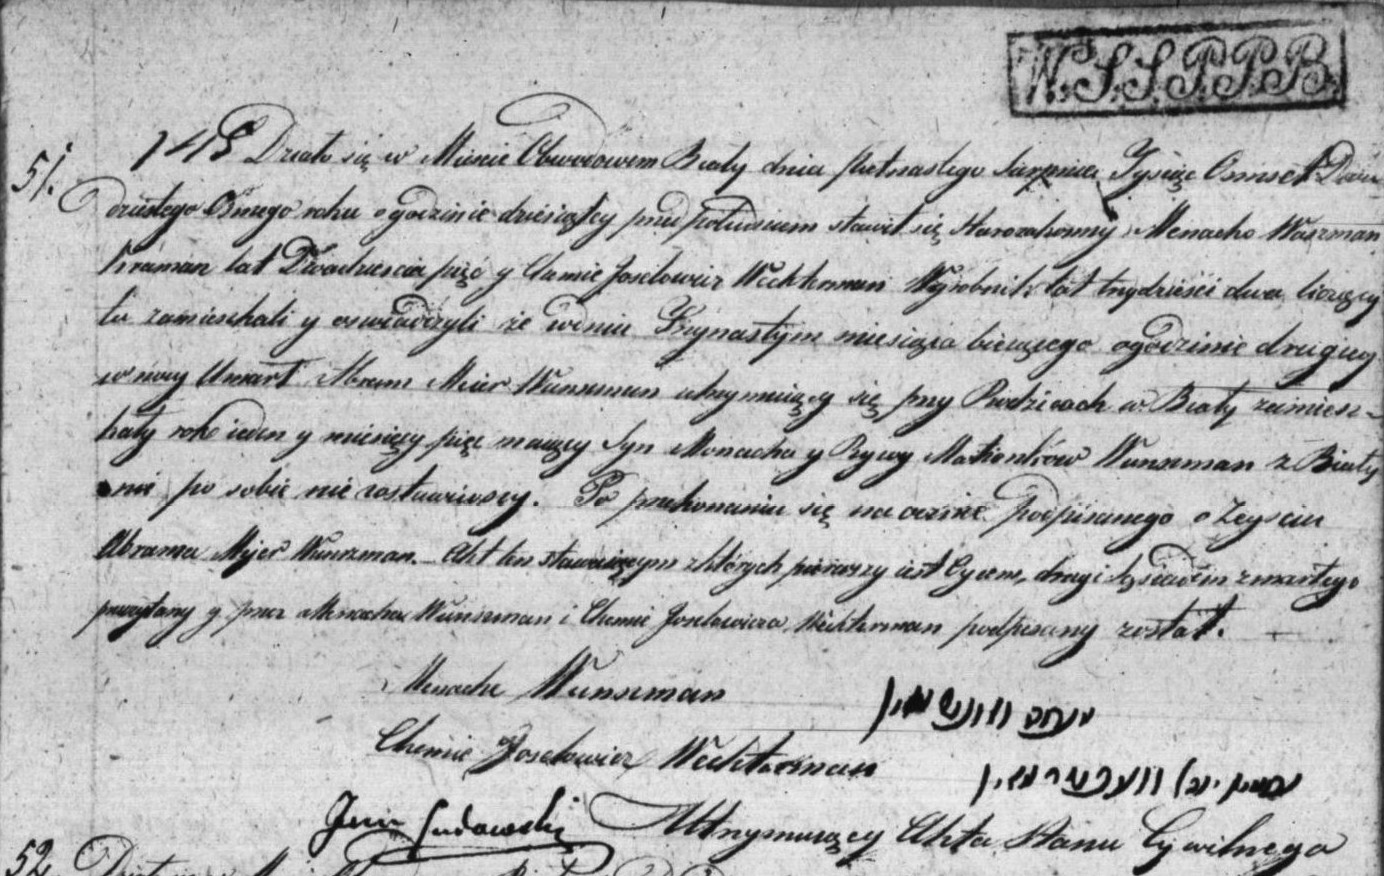 W. S. S. P. P. B.
51. 145 Działo się w Mieście Obwodowem Biały dnia piętnastego Sierpnia Tysiąc Osmset Dwu
dziestego Osmego roku o godzinie dziesiątey przed południem stawił się Starozakonny Menacho Wunszman
Kraman lat Dwadzieścia pięć y Chemie Joselowicz Wechterman Wyrobnik lat trzydzieści dwa liczący
tu zamieszkali y oswiadczyli że w dniu Trzynastym miesiąca bieżącego o godzinie drugiey
w nocy Umarł Abram Meier Wunszman utrzymuiący się przy Rodzicach w Biały zamiesz-
kały rok ieden y miesięcy pięć maiący Syn Menacha y Rywy Małżonków Wunszman z Biały
nic po sobie nie zostawiwszy. Po przekonaniu się naocznie podpisanego o Zeyściu
Abrama Mejer Wunszman. Akt ten stawaiącym z których pierwszy iest Oycem, drugi Sąsiadem zmarłego
przeczytany y przez Menacha Wunszman i Chemie Joselowicza Wechterman podpisany został.
Menache Wunszman
Chemie Joselowicz Wechterman
Utrzymuiący Akta Stanu Cywilnego
52. Działo się w